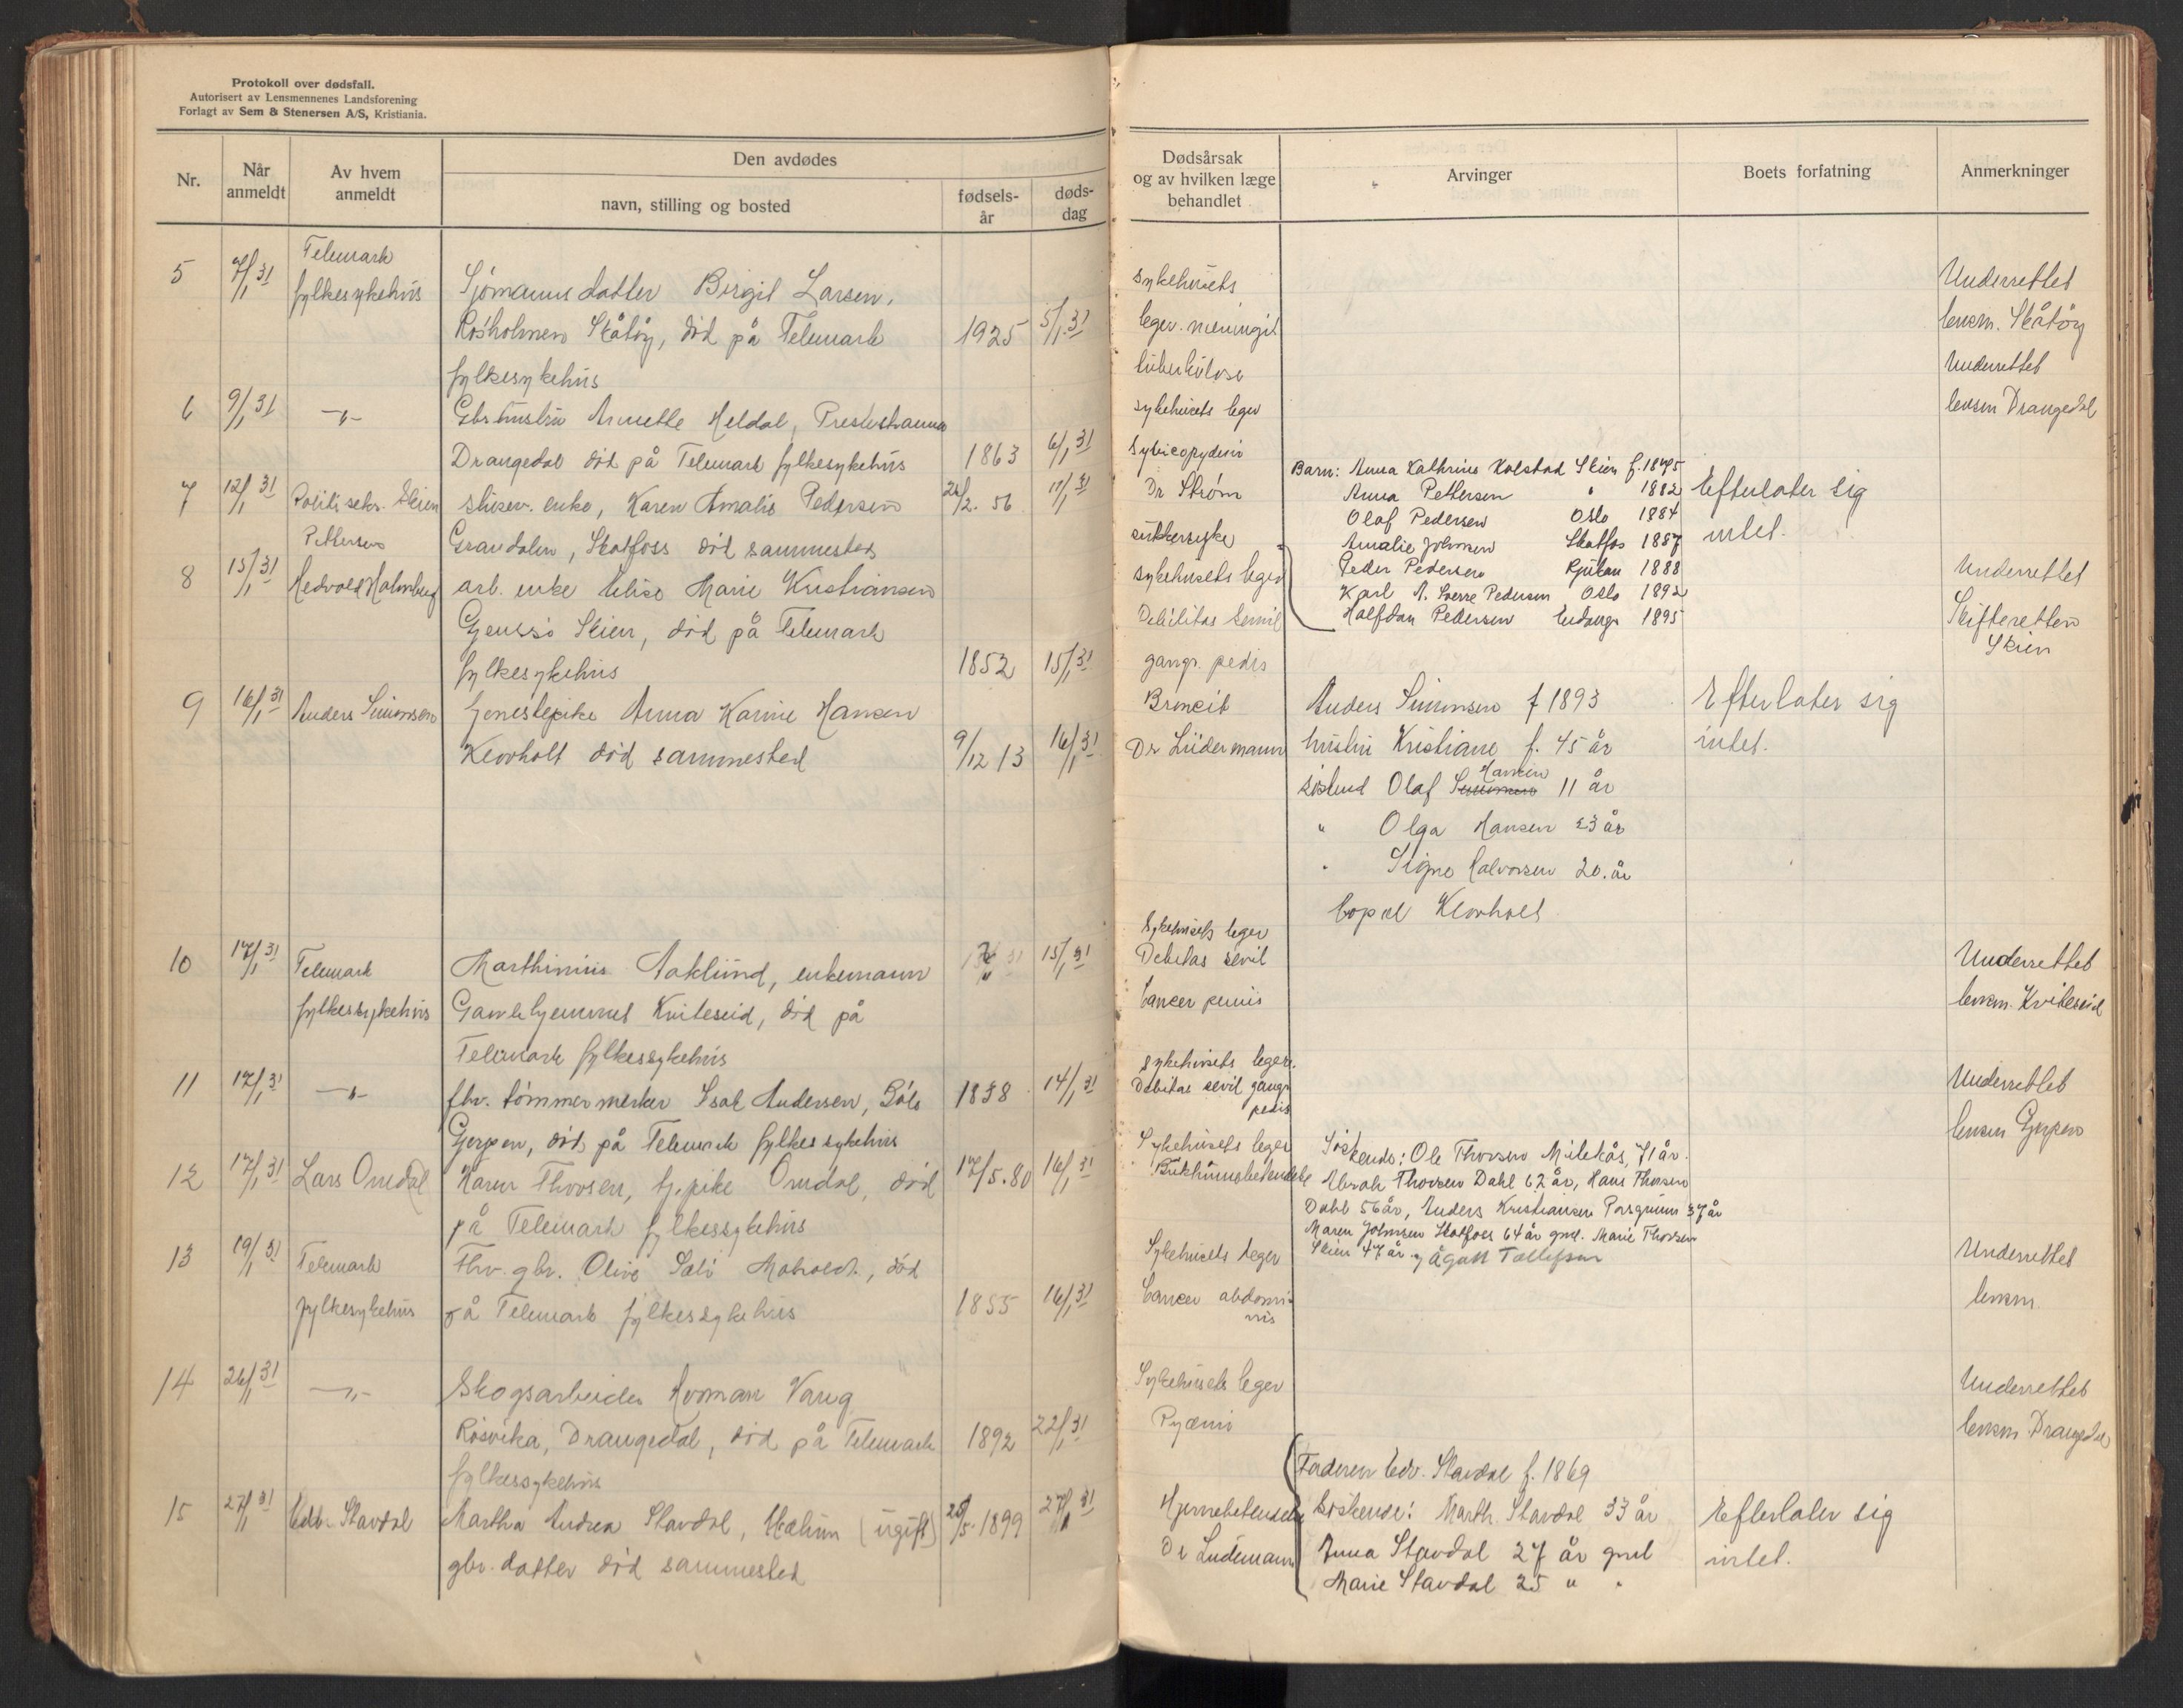 Protokoll over dødsfall.
Autorisert av Lensmennenes Landsforening
Forlagt av Sem & Stenersen A/S, Kristiania.
Nr.
Når anmeldt
Av hvem anmeldt
Den avdødes
navn, stilling og bosted
fødsels-år
døds-dag
Dødsårsak og av hvilken læge behandlet
Arvinger
Boets forfatning
Anmerkninger
5 7/1 31 Telemark
fylkesykehus Sjømanns datter Birgit Larsen,
Skåtøy, död på Telemark 1925 5/1 31
fylkesykehus
sykehusets
leger. meningit
tuberkulose
Underrettet
lensm. Skåtöy
6 9/1 31 —"— Gbr. hustru Annette Heldal,
Drangedal död på Telemark fylkesykehus 1863 6/1 31
sykehusets leger
Underrettet
lensm Drangedal
7 12/1 31 Politi seks. Skien
Pettersen
enke, Karen Amalie Pedersen /2. 56 11/1 31
Grandalen, Skotfoss död sammesteds
Dr Ström
sukkersyke
Barn: Anna Kathrine Kolstad Skien
Anna Pettersen " 1882
Olaf Pedersen Oslo 1884
Amalie Johnsen Skotfos 1887
Peder Pedersen Rjukan 1888
Karl A. Sverre Pedersen Oslo 1892
Halfdan Pedersen Eidanger 1895
Efterlater sig
intet.
8 15/1 31 Hedvold Holmberg arb. enke Elise Marie Kristiansen
Skien, död på Telemark
fylkesykehus 1852 15/1 31
sykehusets leger
Debilitas senil
gangr. pedis
Underrettet
Skifteretten
Skien
9 16/1 31 Anders Simonsen tjenestepike Anna Karine Hansen
Klovholt död sammested 9/12 13 16/1 31
Broncit
Dr Lüdermann
Anders Simonsen f 1893
hustru Kristiane f. 45 år
söskend Olaf Simonsen Hansen 11 år
" Olga Hansen 23 år
" Signe Halvorsen 20. år
bopæl Klovholt
Efterlater sig
intet.
10 17/1 31 Telemark
fylkessykehus
Marthinius Aaklund, enkemann 15/1 31
Gamlehjemmet Kviteseid, död på
Telemark fylkessykehus
Sykehusets leger
Debitas senil
Cancer penis
Underrettet
lensm. Kviteseid
11 17/1 31 —"— fhv. tömmermerker Isak Andersen, Böle 1838 14/1 31
Gjerpen, död på Telemark fylkessykehus
sykehusets leger.
Debitas senil gangr
pedis
Underrettet
lensm Gjerpen
12 17/1 31 Lars Omdal Karen Thorsen, tj. pike Omdal, död 17/5. 80 16/1 31
på Telemark fylkessykehus
Sykehusets leger
Bukhinnebetendelse
Söskende: Ole Thorsen Milekås, 71 år.
Abrah Thorsen Dahl 62 år, Hans Thorsen
Dahl 56 år, Anders Kristiansen Porsgrunn 37 år
Maren Johnsen Skotfoss 64 år gml. Marie Thorsen
Skien 47 år. og Ågot Tollefsen
13 19/1 31 Telemark
fylkesykehus
Fhv. gbr. Olive död
på Telemark fylkessykehus 1855 16/1 31
Sykehusets leger
Cancer abdomi-
nis
Underrettet
lensm.
14 26/1 31 —"— Skogsarbeider Roman Vang
Rösvika, Drangedal, död på Telemark 1892 22/1 31
fylkessykehus
Sykehusets leger
Pyæmi
Underrettet
lensm Drangedal
15 27/1 31 Edv. Stavdal Martha Andrea Stavdal, Melum (ugift) /5. 1899 27/1 31
gbr. datter död sammested
Hjernebetendelse
Dr Ludemann
Faderen Edv. Stavdal f. 1869
Söskende: Marth. Stavdal 33 år
Anna Stavdal 27 år gml
Marie Stavdal 25 " "
Efterlater sig
intet.